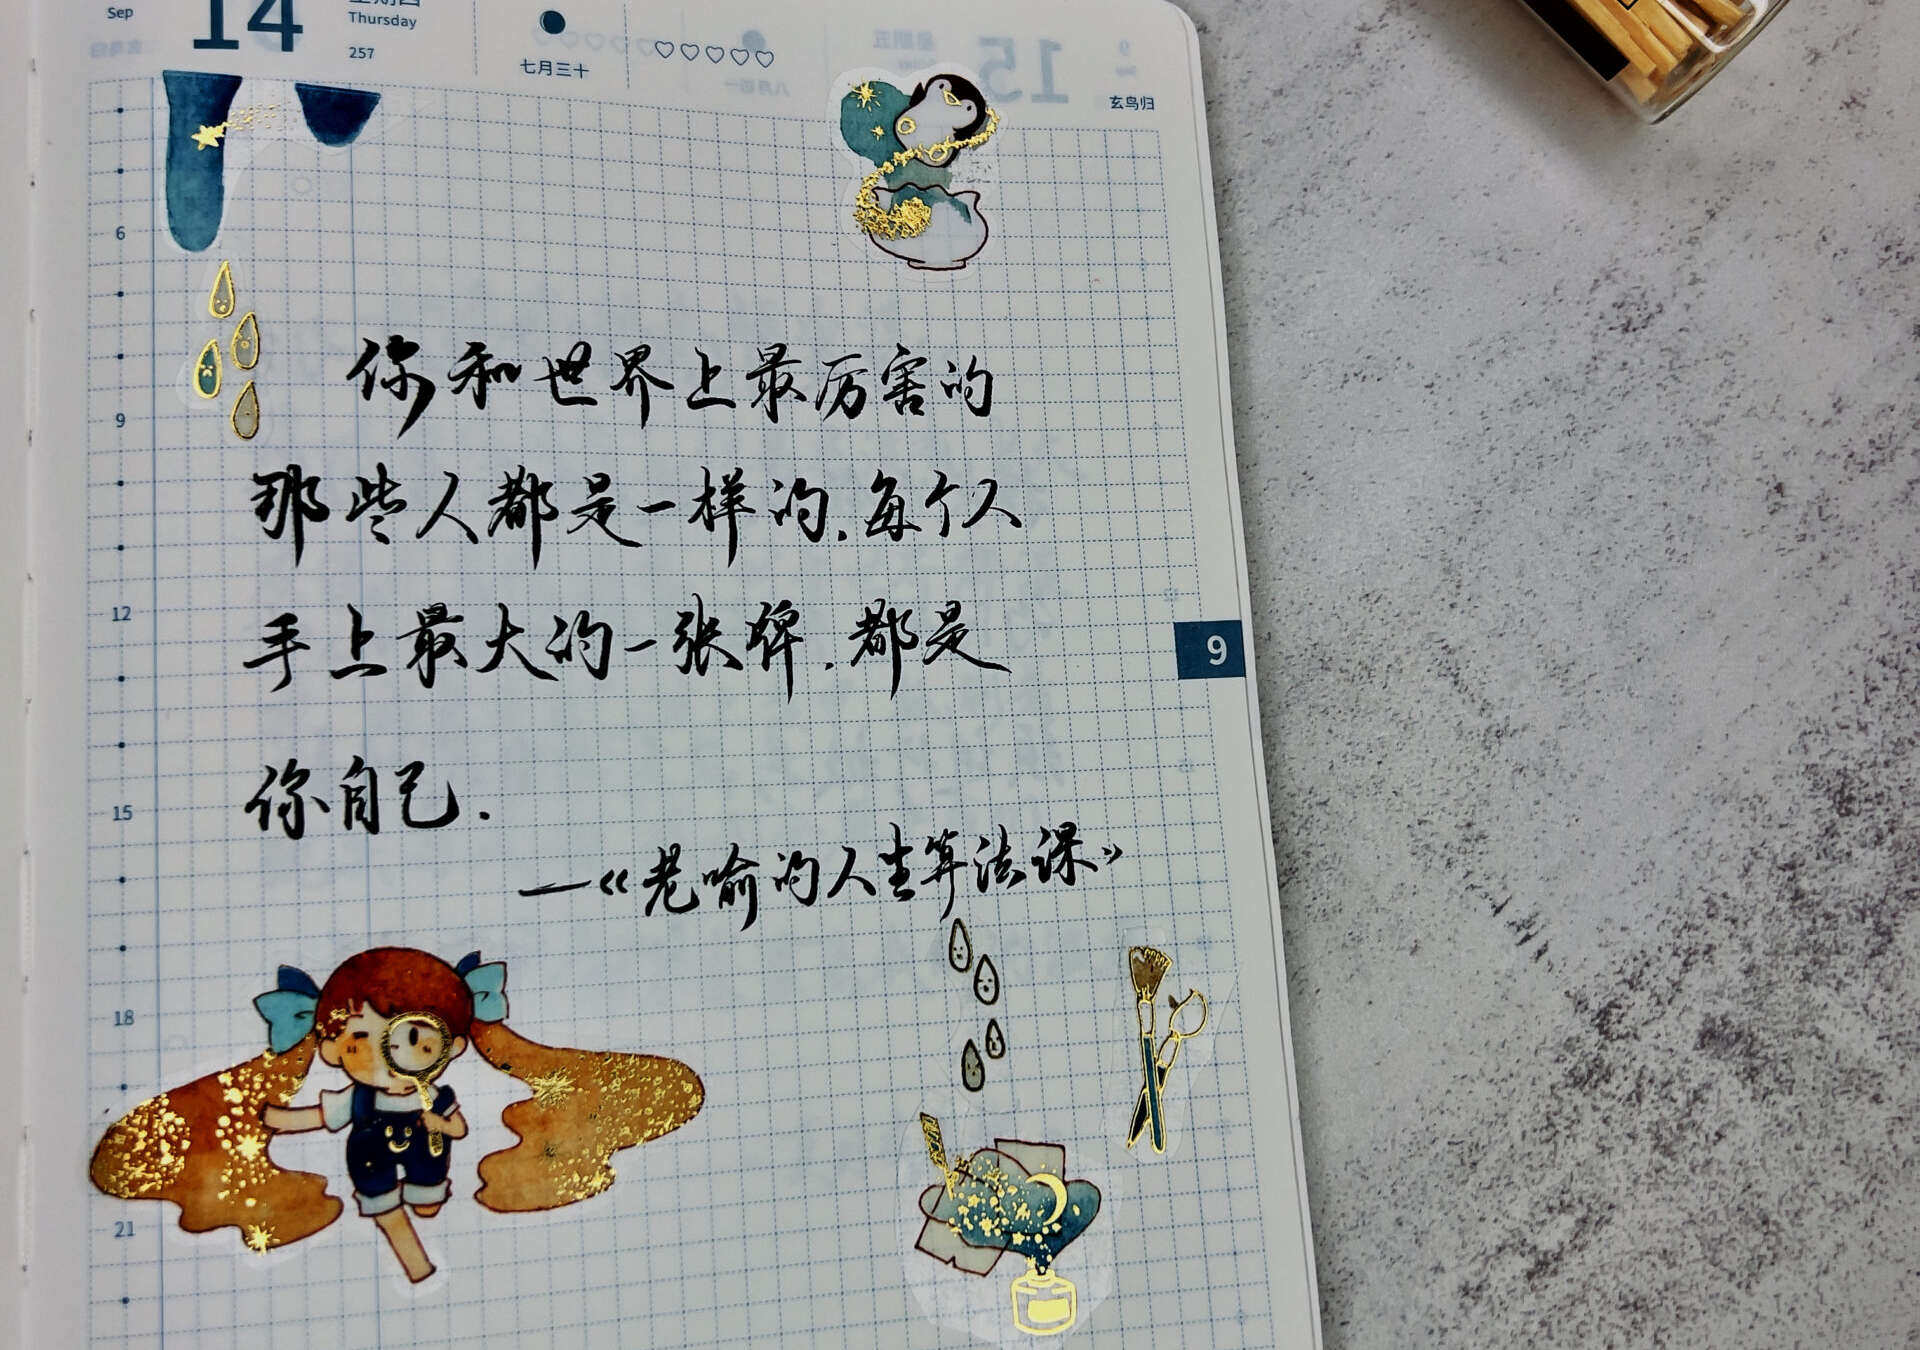 Sep
14
星期四
Thursday
257
七月三十
玄鸟归
6
9
12
15
18
21
9
你和世界上最厉害的
那些人都是一样的.每个人
手上最大的一张牌.都是
你自己.
—《老喻的人生算法课》